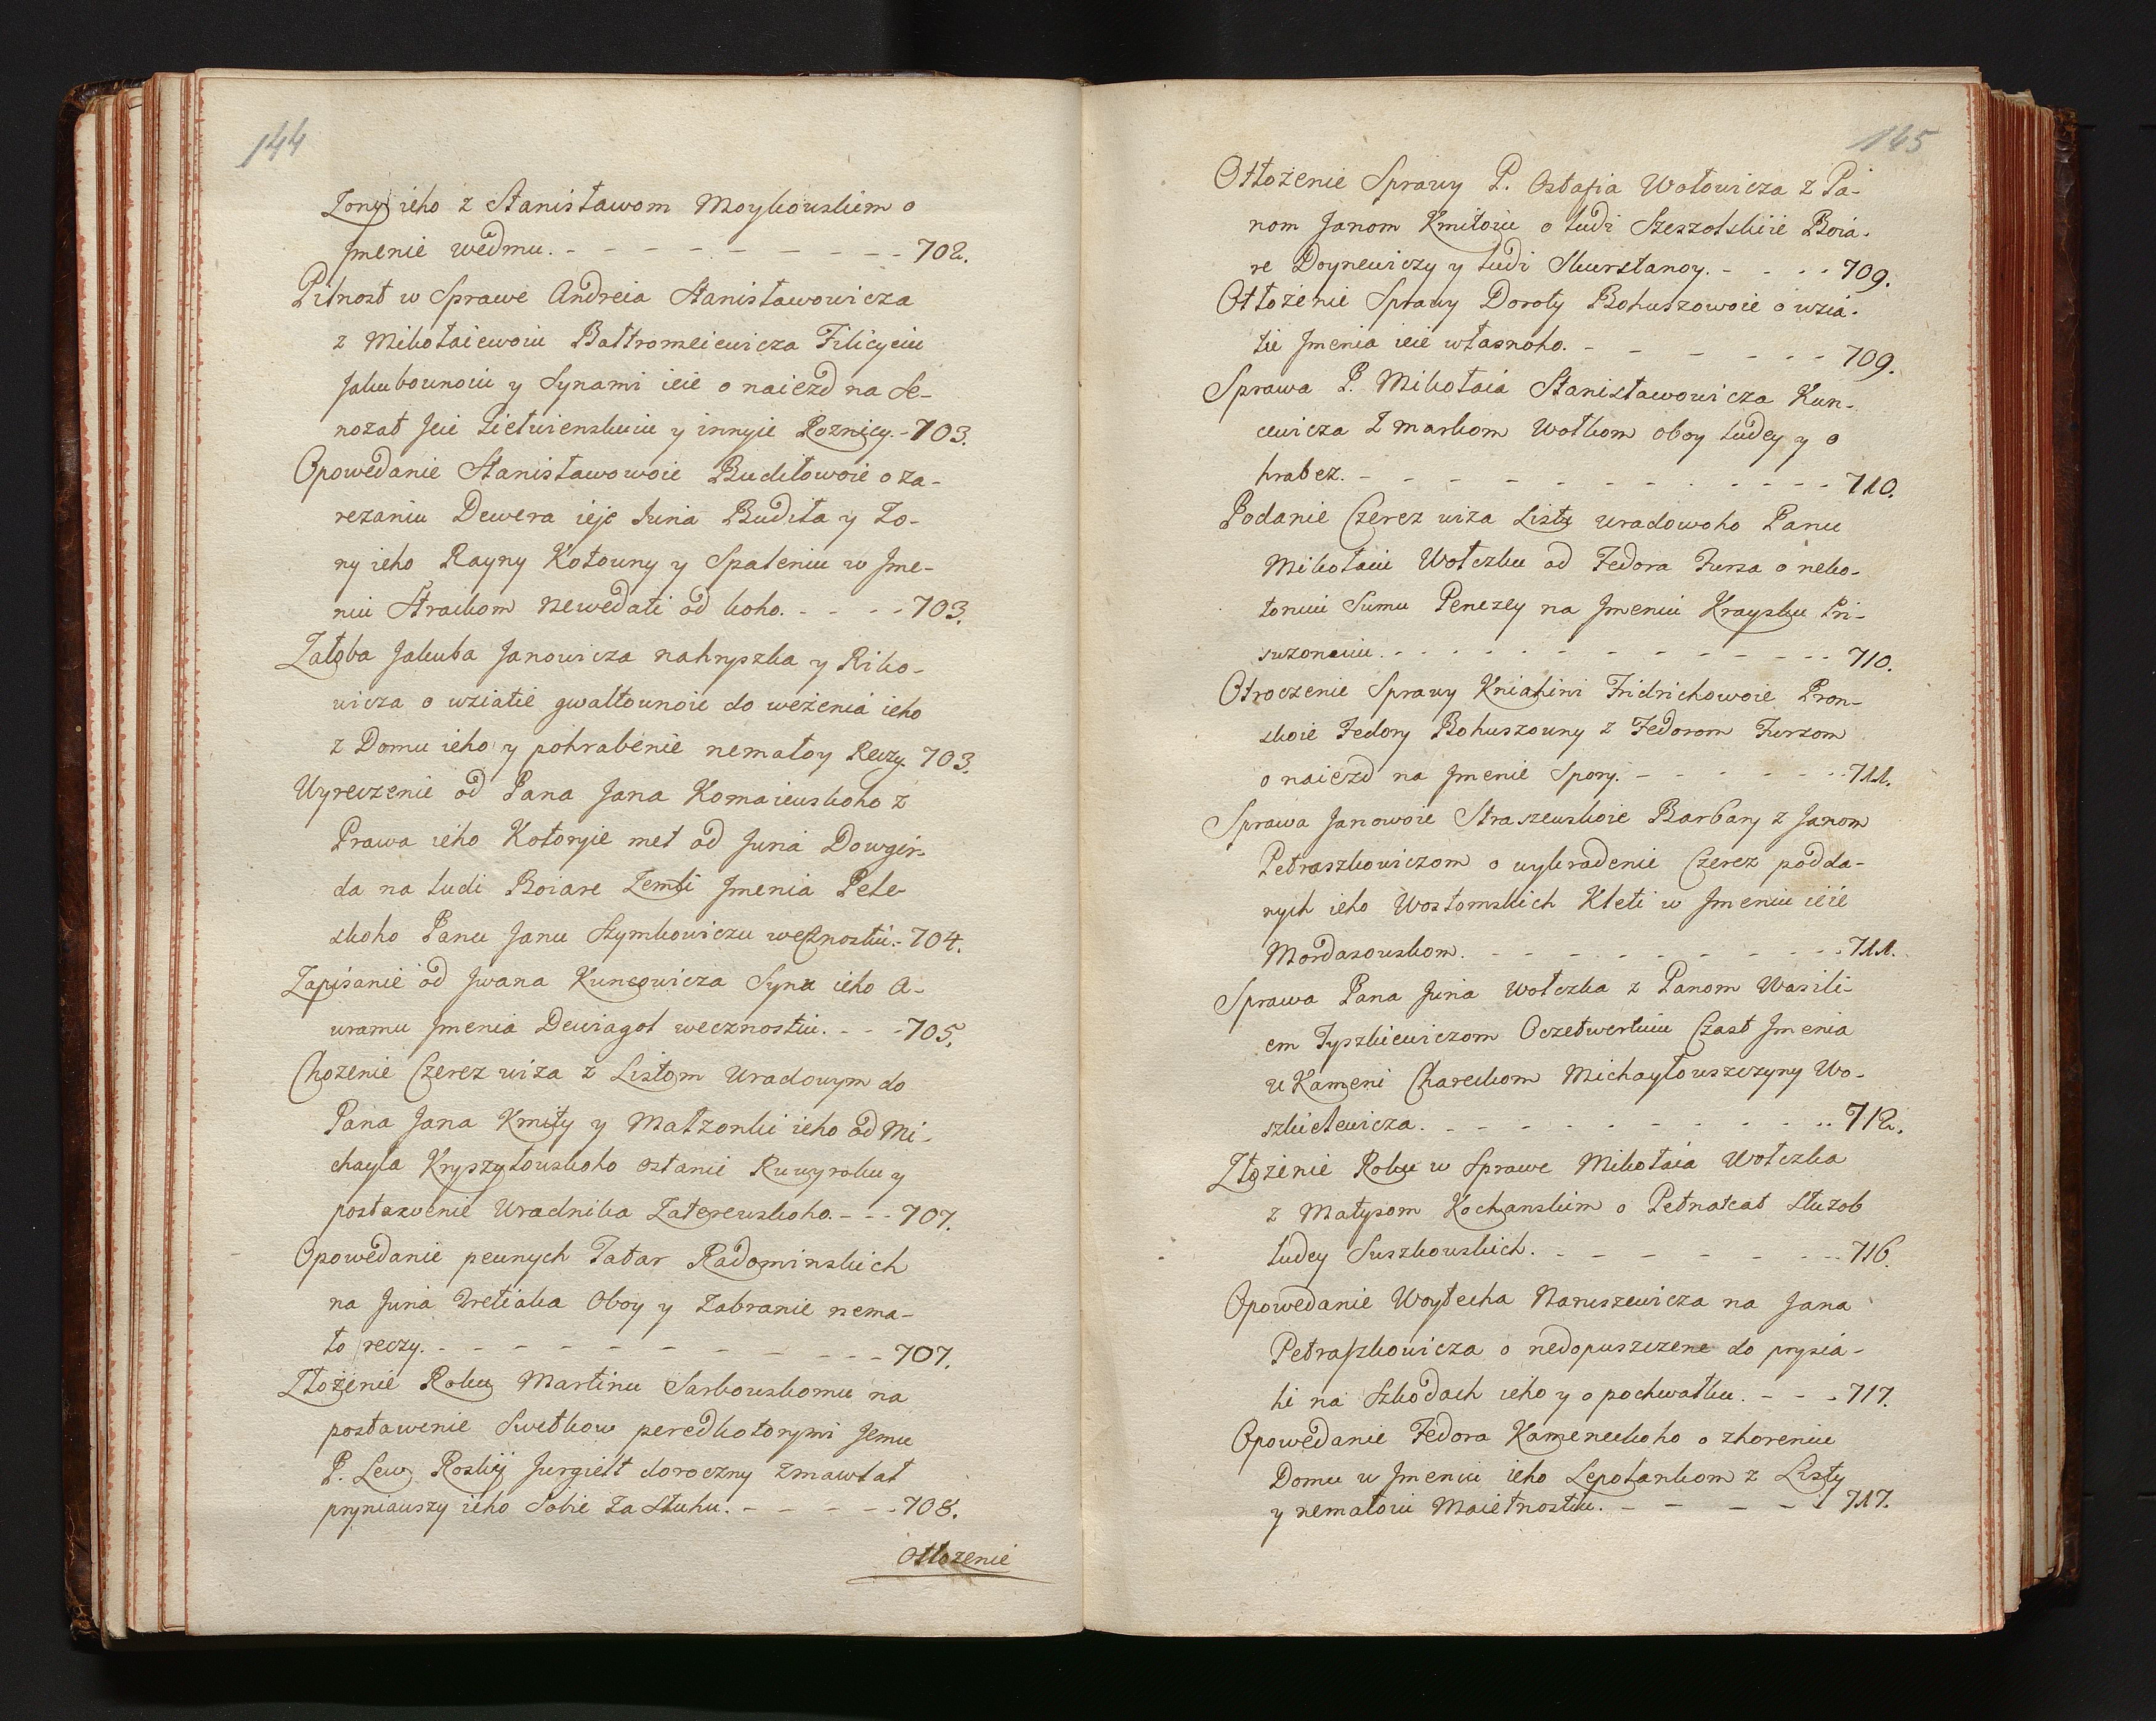 144
Zony ieho z Stanisławom Moykouskiem o
Jmenie wedmu. - - - - - - - - - 702.
Pilnost w Sprawe Andreia Stanisławowicza
z Mikołaiewoiu Bałtromeiewicza Filicyeiu
Jakubounoiu y Synami ieie o naiezd na Se-
nozat Jeie Lietwienskuiu y innyie Roznicy. - 703.
Opowedanie Stanisławowoie Budiłowoie o za-
rezaniu Dewera ieje Juria Budiła y Zo-
ny ieho Rayny Kotowny y Spaleniu w Jme-
niu Strackom newedati od koho. - - - - 703.
Załoba Jakuba Janowicza nahryszka y Riko-
wicza o wziatie gwaltounoie do weżenia ieho
z Domu ieho y pohrabenie nemałoy Reczy 703.
Wyreczenie od Pana Jana Komaiewskoho z
Prawa ieho Kotoryie meł od Juria Dowgir-
da na ludi Boiare Zemli Jmenia Pele-
skoho Panu Janu Szymkowiczu wecznostiu. - 704.
Zapisanie od Jwana Kuncowicza Synu ieho A-
wramu Jmenia Dewiagoł wecznostiu. - - - 705.
Chożenie Czerez wiża z Listom Uradowym do
Pana Jana Kmity y Małzonki ieho od Mi-
chayła Kryszyłouskoho ostanie Ruwyroku y
postawenie Uradnika Zaterewskoho. - - - 707.
Opowedanie peunych Tatar Radominskich
na Juria Tretiaka Oboy y Zabranie nema-
ło reczy. - - - - - - - - - - - - - 707.
Złożenie Roku Martinu Sarkouskomu na
postawenie Swetkow peredkotorymi Jemu
P. Lew Roskij Jurgielt doroczny zmawlał
pryniauszy ieho Sobie Za Słuhu. - - - - - 708.
Otłożenie
145
Otłożenie Sprawy P. Ostafia Wołowicza z Pa-
nom Janom Kmitoiu o ludi Szeszolskiie Boia-
re Doynewiczy y ludi Skurstanoy. - - - - 709.
Otłożenie Sprawy Doroty Bohuszowoie o wzia-
tie Jmenia ieie własnoho. - - - - - - - 709.
Sprawa P. Mikołaia Stanisławowicza Kun-
cewicza Z markom Wołkom oboy ludey y o
hrabez. - - - - - - - - - - - - 710.
Podanie Czerez wiza Listu uradowoho Panu
Mikołaiu Wołczku od Fedora Fursa o neko-
toruiu Sumu Penezey na Jmeniu Kraysku Pri-
suzonuiu. - - - - - - - - - - - - 710.
Otroczenie Sprawy Kniahini Fridrichowoie Pron-
skoie Fedory Bohuszouny z Fedorom Furzom
o naiezd na Jmenie Spory. - - - - - - - 711.
Sprawa Janowoie Straszewskoie Barbary z Janom
Petraszkowiczom o wykradenie Czerez podda-
nych ieho Wostomskich Kleti w Jmeniu ieie
Mordasouskom. - - - - - - - - - - 711.
Sprawa Pana Juria Wołczka z Panom Wasili-
em Tyszkiewiczom Oczetwertuiu Czast Jmenia
u Kameni Chareckom Michayłouszczyny Wo-
szkielewicza. - - - - - - - - - - - 712.
Złożenie Roku w Sprawe Mikołaia Wołczka
z Matysom Kochanskim o Petnatcat Służob
ludey Suszkouskich. - - - - - - - - - 716.
Opowedanie Woytecha Naruszewicza na Jana
Petraszkowicza o nedopuszczene do prysia-
hi na Szkodach ieho y o pochwałku. - - - 717.
Opowedanie Fedora Kameneckoho o zhoreniu
Domu w Jmeniu ieho Lepotankom z Listy
y nemałoiu Maietnostiu. - - - - - 717.